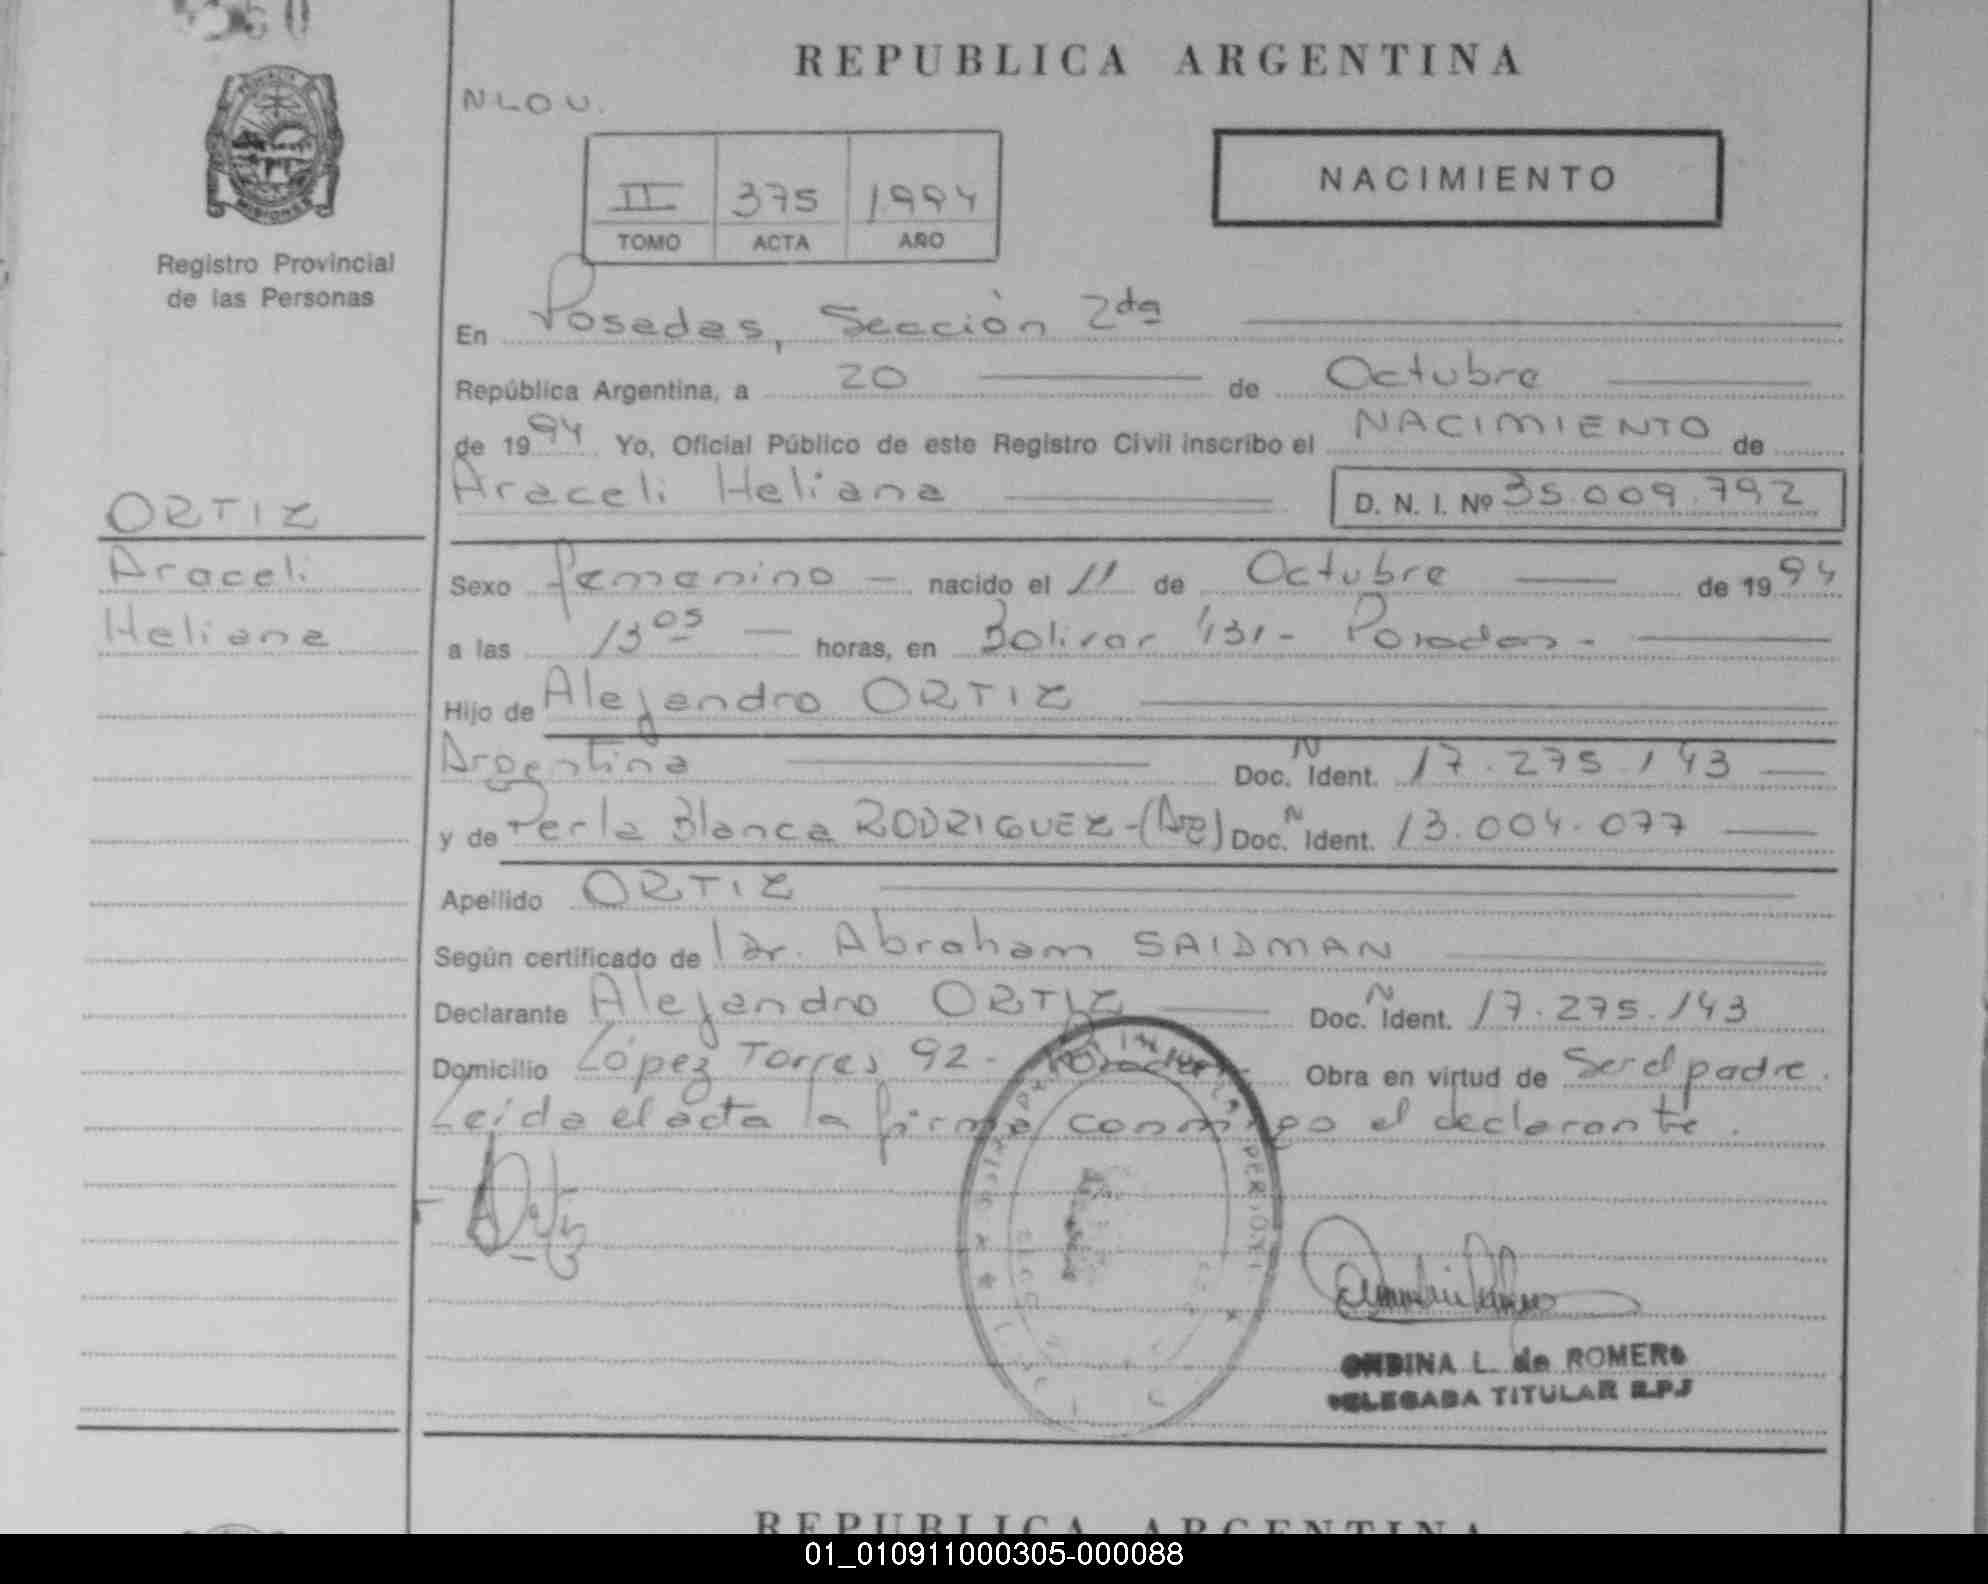 REPUBLICA ARGENTINA
N L O U.
NACIMIENTO
II 375 1994
TOMO ACTA AÑO
MISIONES
Registro Provincial
de las Personas
En Posadas, Sección 2da
República Argentina, a 20 de Octubre
de 1994 Yo, Oficial Público de este Registro Civil inscribo el NACIMIENTO de
Araceli Heliana D. N. I. Nº 35.009.792
ORTIZ
Araceli
Heliana
Sexo femenino nacido el 11 de Octubre de 1994
a las 13 05 horas, en Bolivar 431 - Posadas -
Hijo de Alejandro ORTIZ
Argentina Doc. N Ident. 17.275.143
y de Perla Blanca RODRIGUEZ - (Arg) Doc. N Ident. 13.004.077
Apellido ORTIZ
Según certificado de Dr. Abraham SAIDMAN
Declarante Alejandro ORTIZ Doc. N Ident. 17.275.143
Domicilio López Torres 92 - Posadas Obra en virtud de Ser el padre.
Leída el acta la firma conmigo el declarante.
ONDINA L. de ROMERO
DELEGADA TITULAR R.P.J
REPUBLICA ARGENTINA
01_010911000305-000088